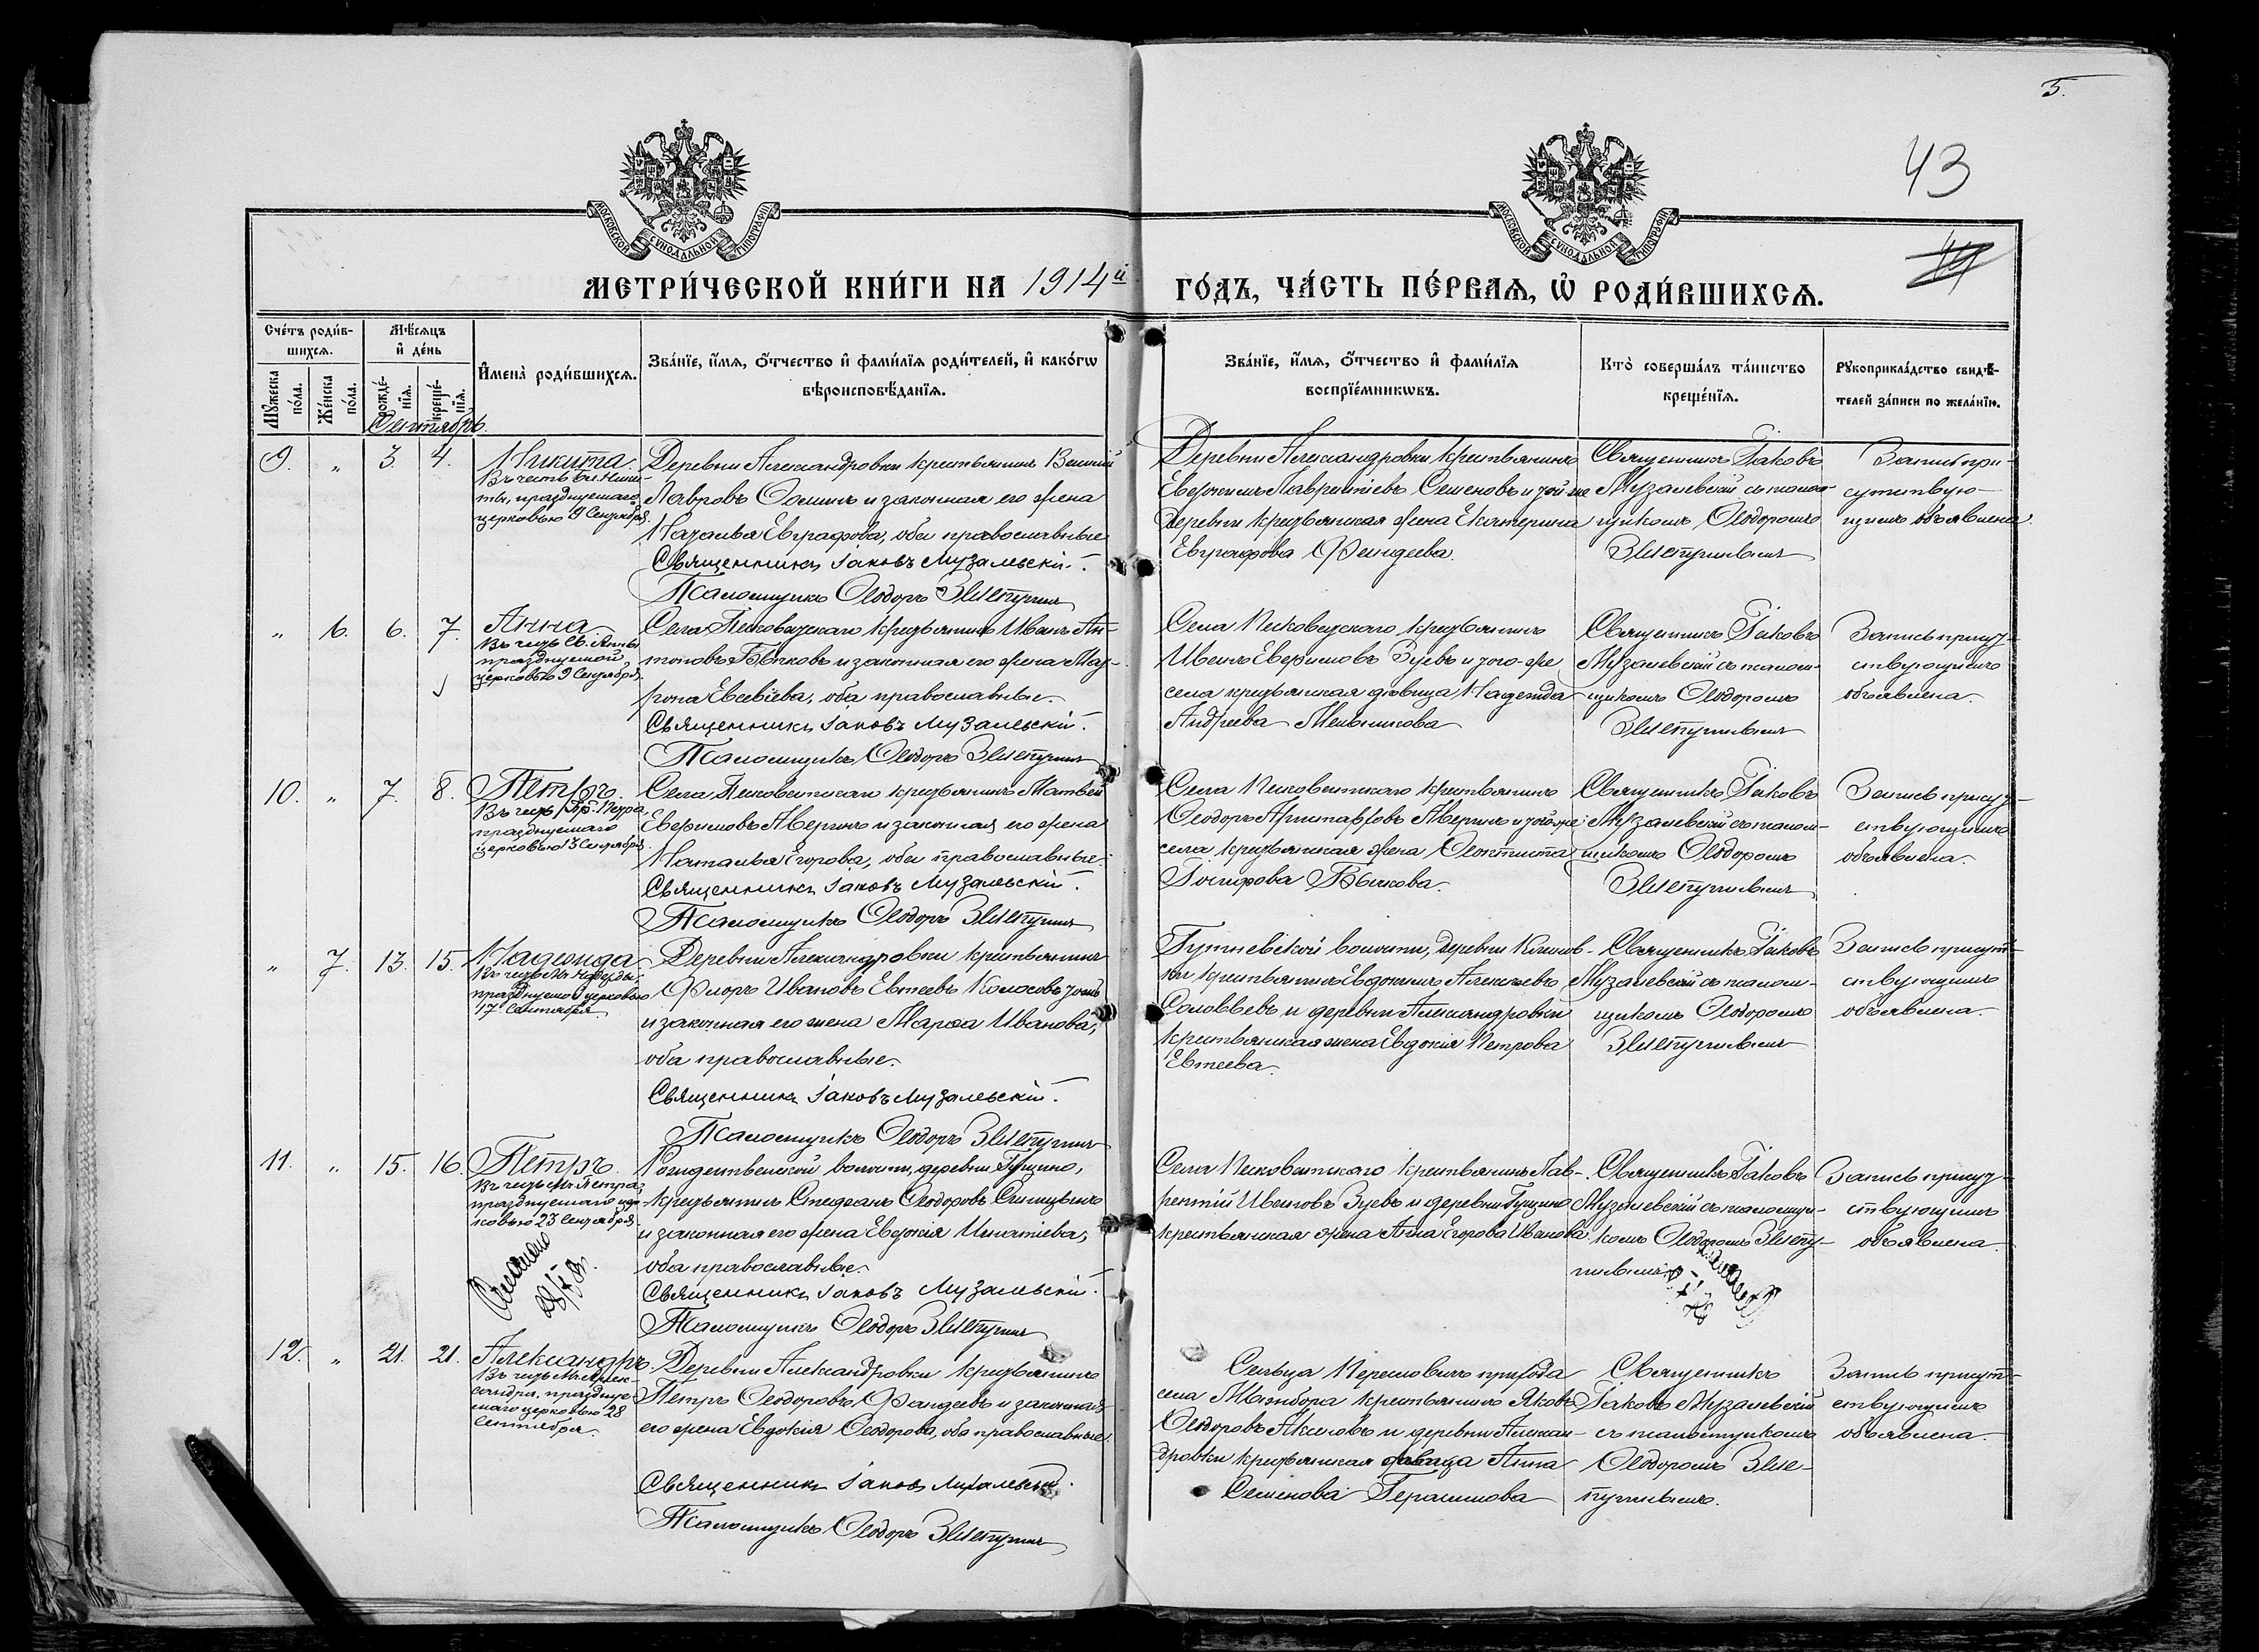 5.
43
МОСКОВСКОЙ СУНОДАЛЬНОЙ ТИПОГРАФІИ
МОСКОВСКОЙ СУНОДАЛЬНОЙ ТИПОГРАФІИ
МЕТРИ́ЧЕСКОЙ КНИ́ГИ НА 1914й ГО́ДЪ, ЧА́СТЬ ПЕ́РВАЯ, Ѡ РОДИ́ВШИХСЯ.
Сче́тъ роди́в-
шихся.
Мѣ́сяцъ
и де́нь
Мꙋжеска
по́ла.
Же́нска
по́ла.
рожде́-
нїя.
креще́-
нїя.
Имена̀ роди́вшихся.
Зва́нїе, и́мя, ѻ́тчество и фами́лїя роди́телей, и како́гѡ
вѣроисповѣ́данїя.
Зва́нїе, и́мя, ѻ́тчество и фами́лїя
воспрїе́мникѡвъ.
Кто̀ соверша́лъ та́инство
креще́нїя.
Рꙋкоприкла́дство свидѣ́-
телей за́писи по жела́нїю.
Сентябрь.
9. " 3. 4.
Никита.
Въ честь Вм. Ники-
ты, празднуемаго
церковью 9 Сентября.
Деревни Александровки крестьянинъ
Лавровъ и законная его жена
Наталья Евграфова, оба православные
Священникъ Іаковъ Музалевскій.
Псаломщикъ Ѳеодоръ
Деревни Александровки крестьянинъ
Евфимъ Лаврентіевъ Семеновъ и той-же
деревни крестьянская жена Екатерина
Евграфова
Священникъ Іаковъ
Музалевскій съ псалом-
щикомъ Ѳеодоромъ
Запись при-
сутствую-
щимъ объявлена.
" 6. 6. 7.
Анна
Въ честь Св. Анны
празднуемой
церковью 9 Сентября.
Села Песковатскаго крестьянинъ Иванъ Ан-
тоновъ Бычковъ и законная его жена Мат-
рона Евсевіева, оба православные.
Священникъ Іаковъ Музалевскій.
Псаломщикъ Ѳеодоръ
Села Песковатскаго крестьянинъ
Иванъ Евфимовъ Зуевъ и того-же
села крестьянская дѣвица Надежда
Андреева Мельникова
Священникъ Іаковъ
Музалевскій съ псалом-
щикомъ Ѳеодоромъ
Запись присут-
ствующимъ
объявлена.
10. " 7. 8.
Петръ.
Въ честь Петра
празднуемаго
церковью 13 Сентября.
Села Песковатскаго крестьянинъ Матвей
Евфимовъ Аверинъ и законная его жена
Наталья Егорова, оба православные.
Священникъ Іаковъ Музалевскій.
Псаломщикъ Ѳеодоръ
Села Песковатскаго крестьянинъ
Ѳеодоръ Аверинъ и того-же
села крестьянская жена Ѳеоктиста
Бычкова.
Священникъ Іаковъ
Музалевскій съ псалом-
щикомъ Ѳеодоромъ
Запись присут-
ствующимъ
объявлена.
" 7. 13. 15.
Надежда
Въ честь Мч. Надежды
празднуемой церковью
17 Сентября.
Деревни Александровки крестьянинъ
Флоръ Ивановъ Евтеевъ Колосовъ тожъ
и законная его жена Марѳа Иванова,
оба православные.
Священникъ Іаковъ Музалевскій.
Псаломщикъ Ѳеодоръ
волости, деревни
крестьянинъ Евдокимъ Алексѣевъ
Соловьевъ и деревни Александровки
крестьянская жена Евдокія Петрова
Евтеева.
Священникъ Іаковъ
Музалевскій съ псалом-
щикомъ Ѳеодоромъ
Запись присут-
ствующимъ
объявлена.
11. " 15. 16.
Петръ.
Въ честь Мч. Петра,
празднуемаго цер-
ковью 23 Сентября.
Рождественской волости, деревни Гущино,
крестьянинъ Стефанъ Ѳеодоровъ Синицынъ
и законная его жена Евдокія Игнатіева,
оба православные.
Священникъ Іаковъ Музалевскій.
Псаломщикъ Ѳеодоръ
Села Песковатскаго крестьянинъ Лав-
рентій Ивановъ Зуевъ и деревни Гущино
крестьянская жена Анна Егорова Иванова
Священникъ Іаковъ
Музалевскій съ псаломщи-
комъ Ѳеодоромъ
Запись присут-
ствующимъ
объявлена.
12. " 21. 21.
Александръ.
Въ честь Мч. Алек-
сандра, праздну-
емаго церковью 28
Сентября.
Деревни Александровки крестьянинъ
Петръ Ѳеодоровъ и законная
его жена Евдокія Ѳеодорова, оба православные.
Священникъ Іаковъ Музалевскій.
Псаломщикъ Ѳеодоръ
Сельца прихода
села крестьянинъ Яковъ
Ѳеодоровъ Акимовъ и деревни Алексан-
дровки крестьянская дѣвица Анна
Семенова Герасимова
Священникъ
Іаковъ Музалевскій
съ псаломщикомъ
Ѳеодоромъ
Запись присут-
ствующимъ
объявлена.